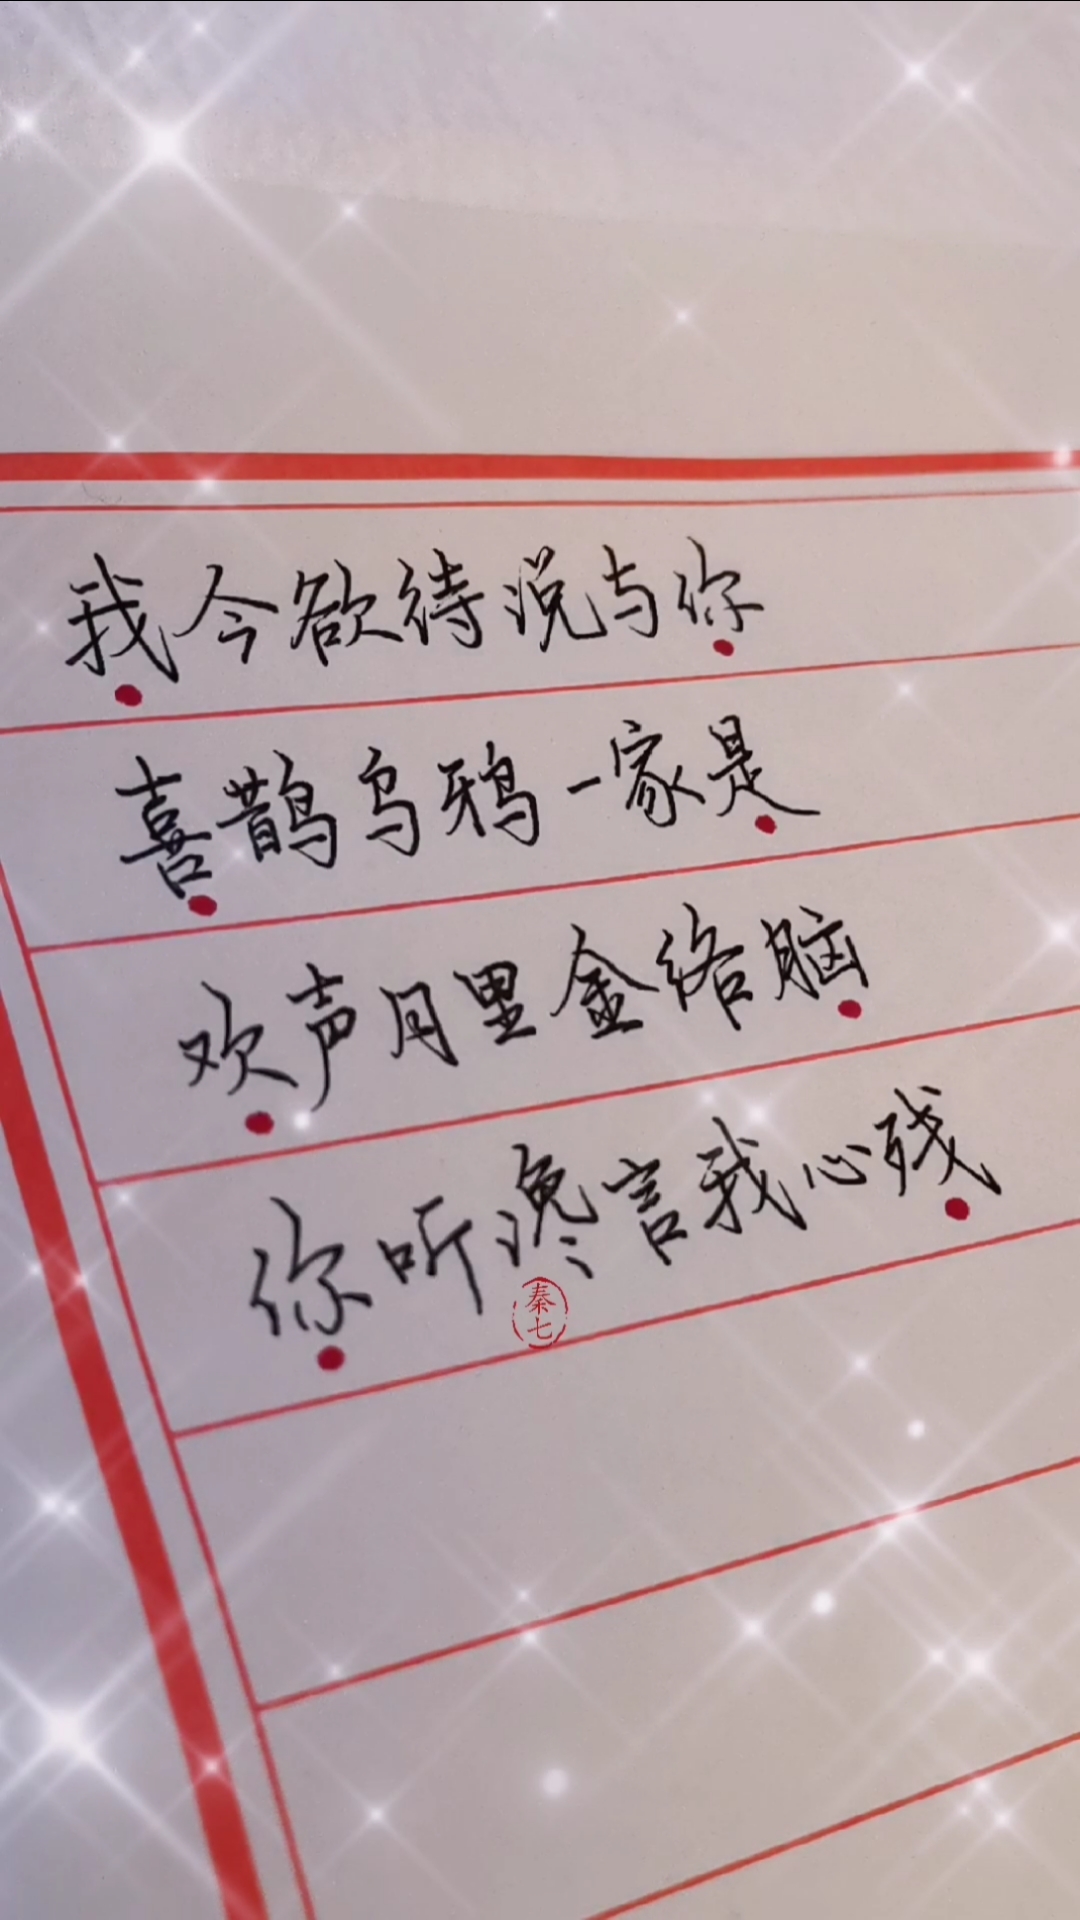 我今欲待说与你
喜鹊乌鸦一家是
欢声月里金络脑
你听谗言我心残
秦七